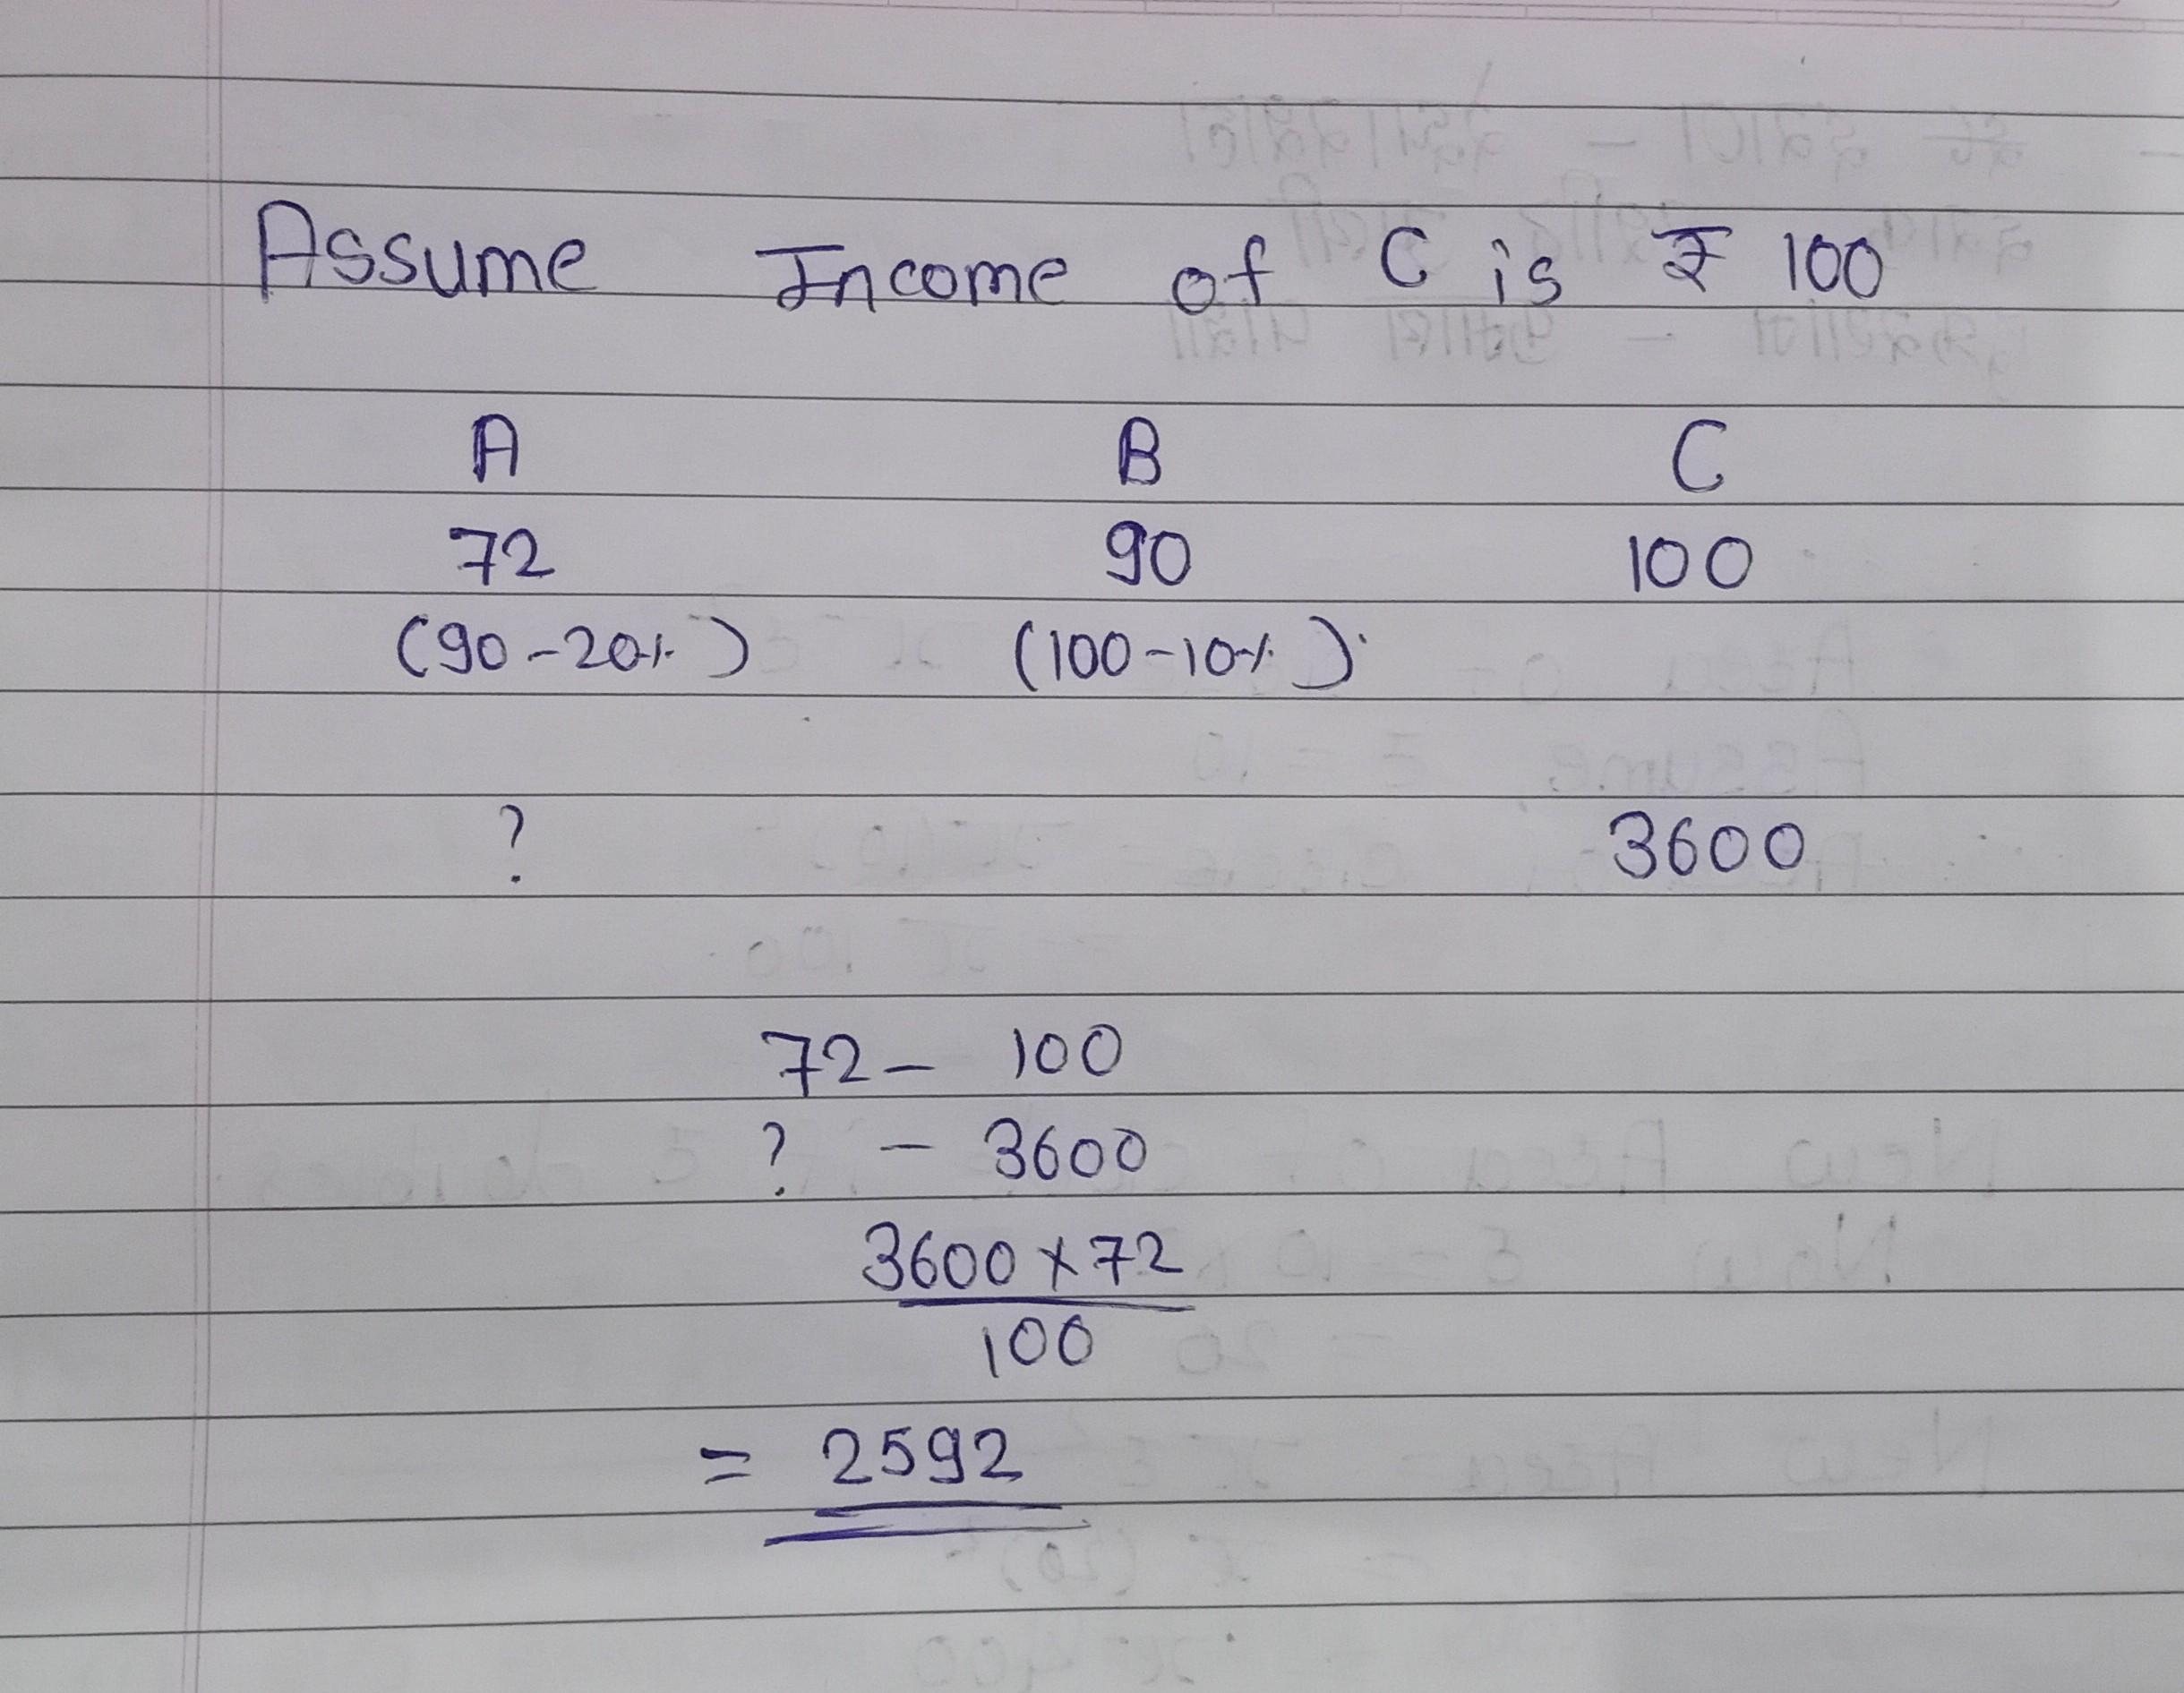 Assume Income of C is ₹ 100
A B C
72 90 100
(90-20%) (100-10%)
? 3600
72 - 100
? - 3600
3600 x 72
100
= 2592